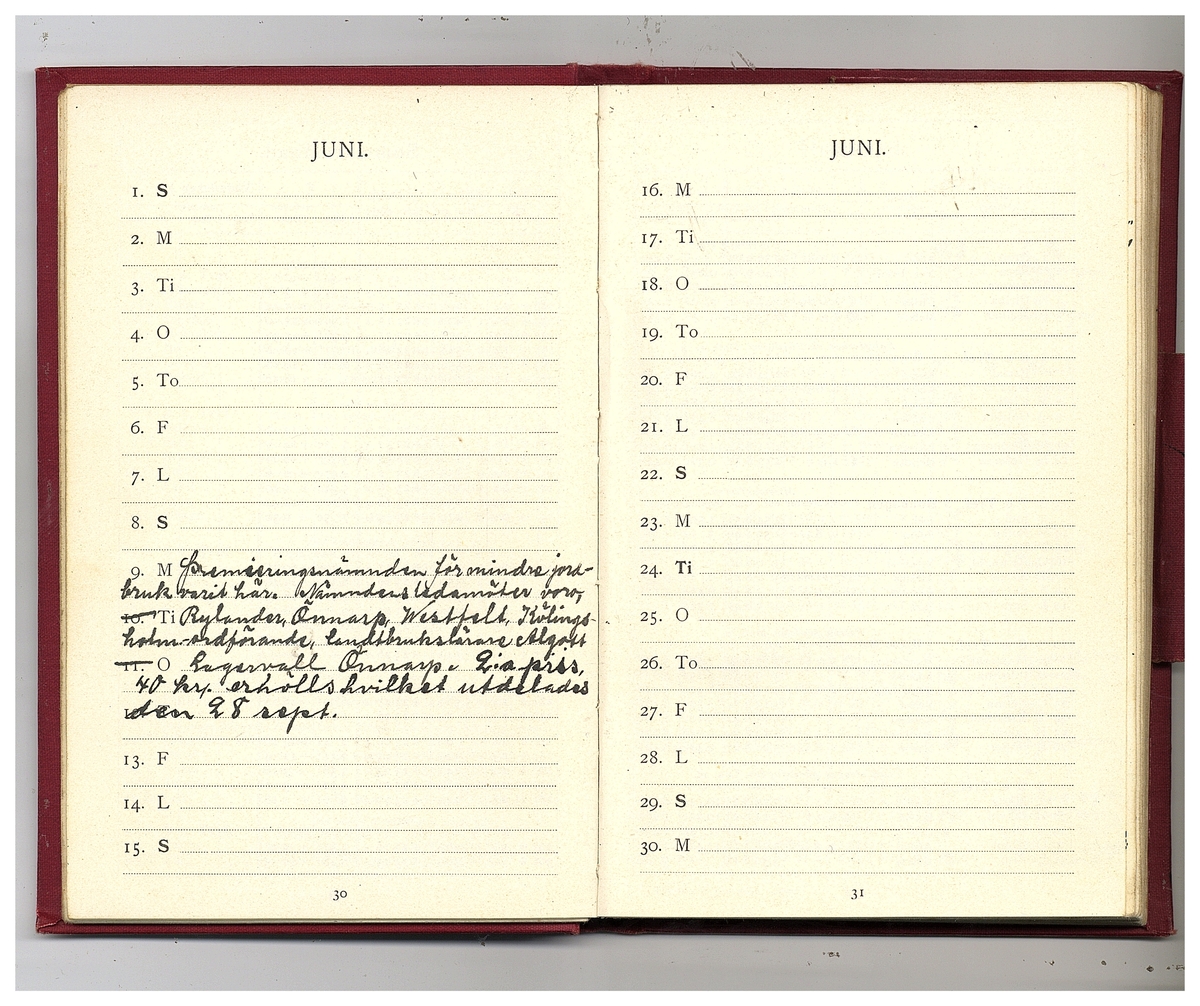 JUNI.
1. S
2. M
3. Ti
4. O
5. To
6. F
7. L
8. S
9. M Premieringsnämnden för mindre jord-
bruk varit här. Nämndens ledamöter voro,
10. Ti Rylander, Önnarp, Westfelt, Kölings-
holm-ordförande, landtbrukslärare Algott
11. O Lagervall Önnarp. 2:a pris,
40 kr. erhölls hvilket utdelades
den 28 sept.
13. F
14. L
15. S
30
JUNI.
16. M
17. Ti
18. O
19. To
20. F
21. L
22. S
23. M
24. Ti
25. O
26. To
27. F
28. L
29. S
30. M
31